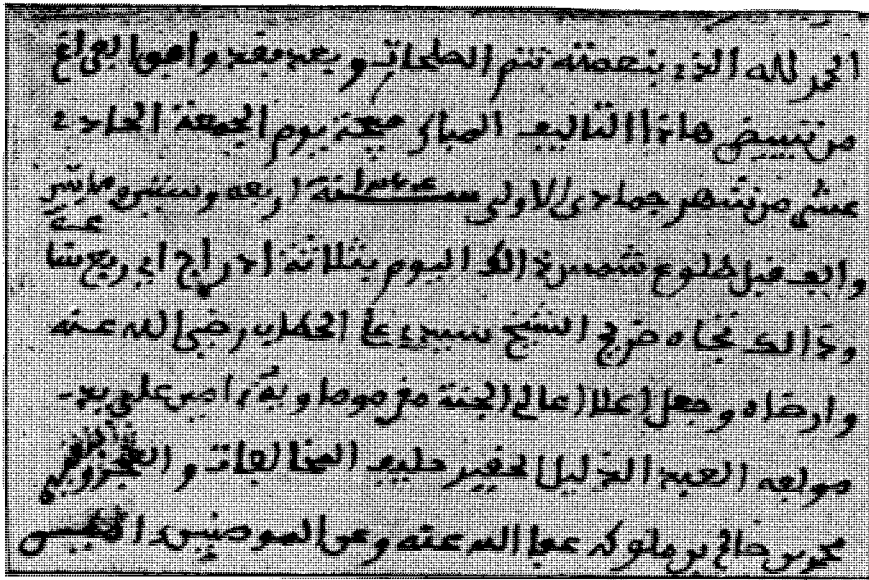 الحمد لله الذى بنعمته تتم الصلحات وبعد فقد وافق الفراغ
من تبييض هاذا التاليف المبارك صبيحة يوم الجمعة الحادى
عشر من شهر جمادى الاولى سنة اربعه وستين ومايتين
والف قبل طلوع شمس ذالك اليوم بثلاثة ادراج اى ربع ساعة
وذالك تجاه ضريح الشيخ سيدى على الحطاب رضي الله عنه
وارضاه وجعل اعلا اعالي الجنة ماواه امين على يد
مولفه العبد الذليل الحقير حليف المخالفات والعجز
محمد بن صالح بن ملوكه عفا الله عنه وعن المومنين